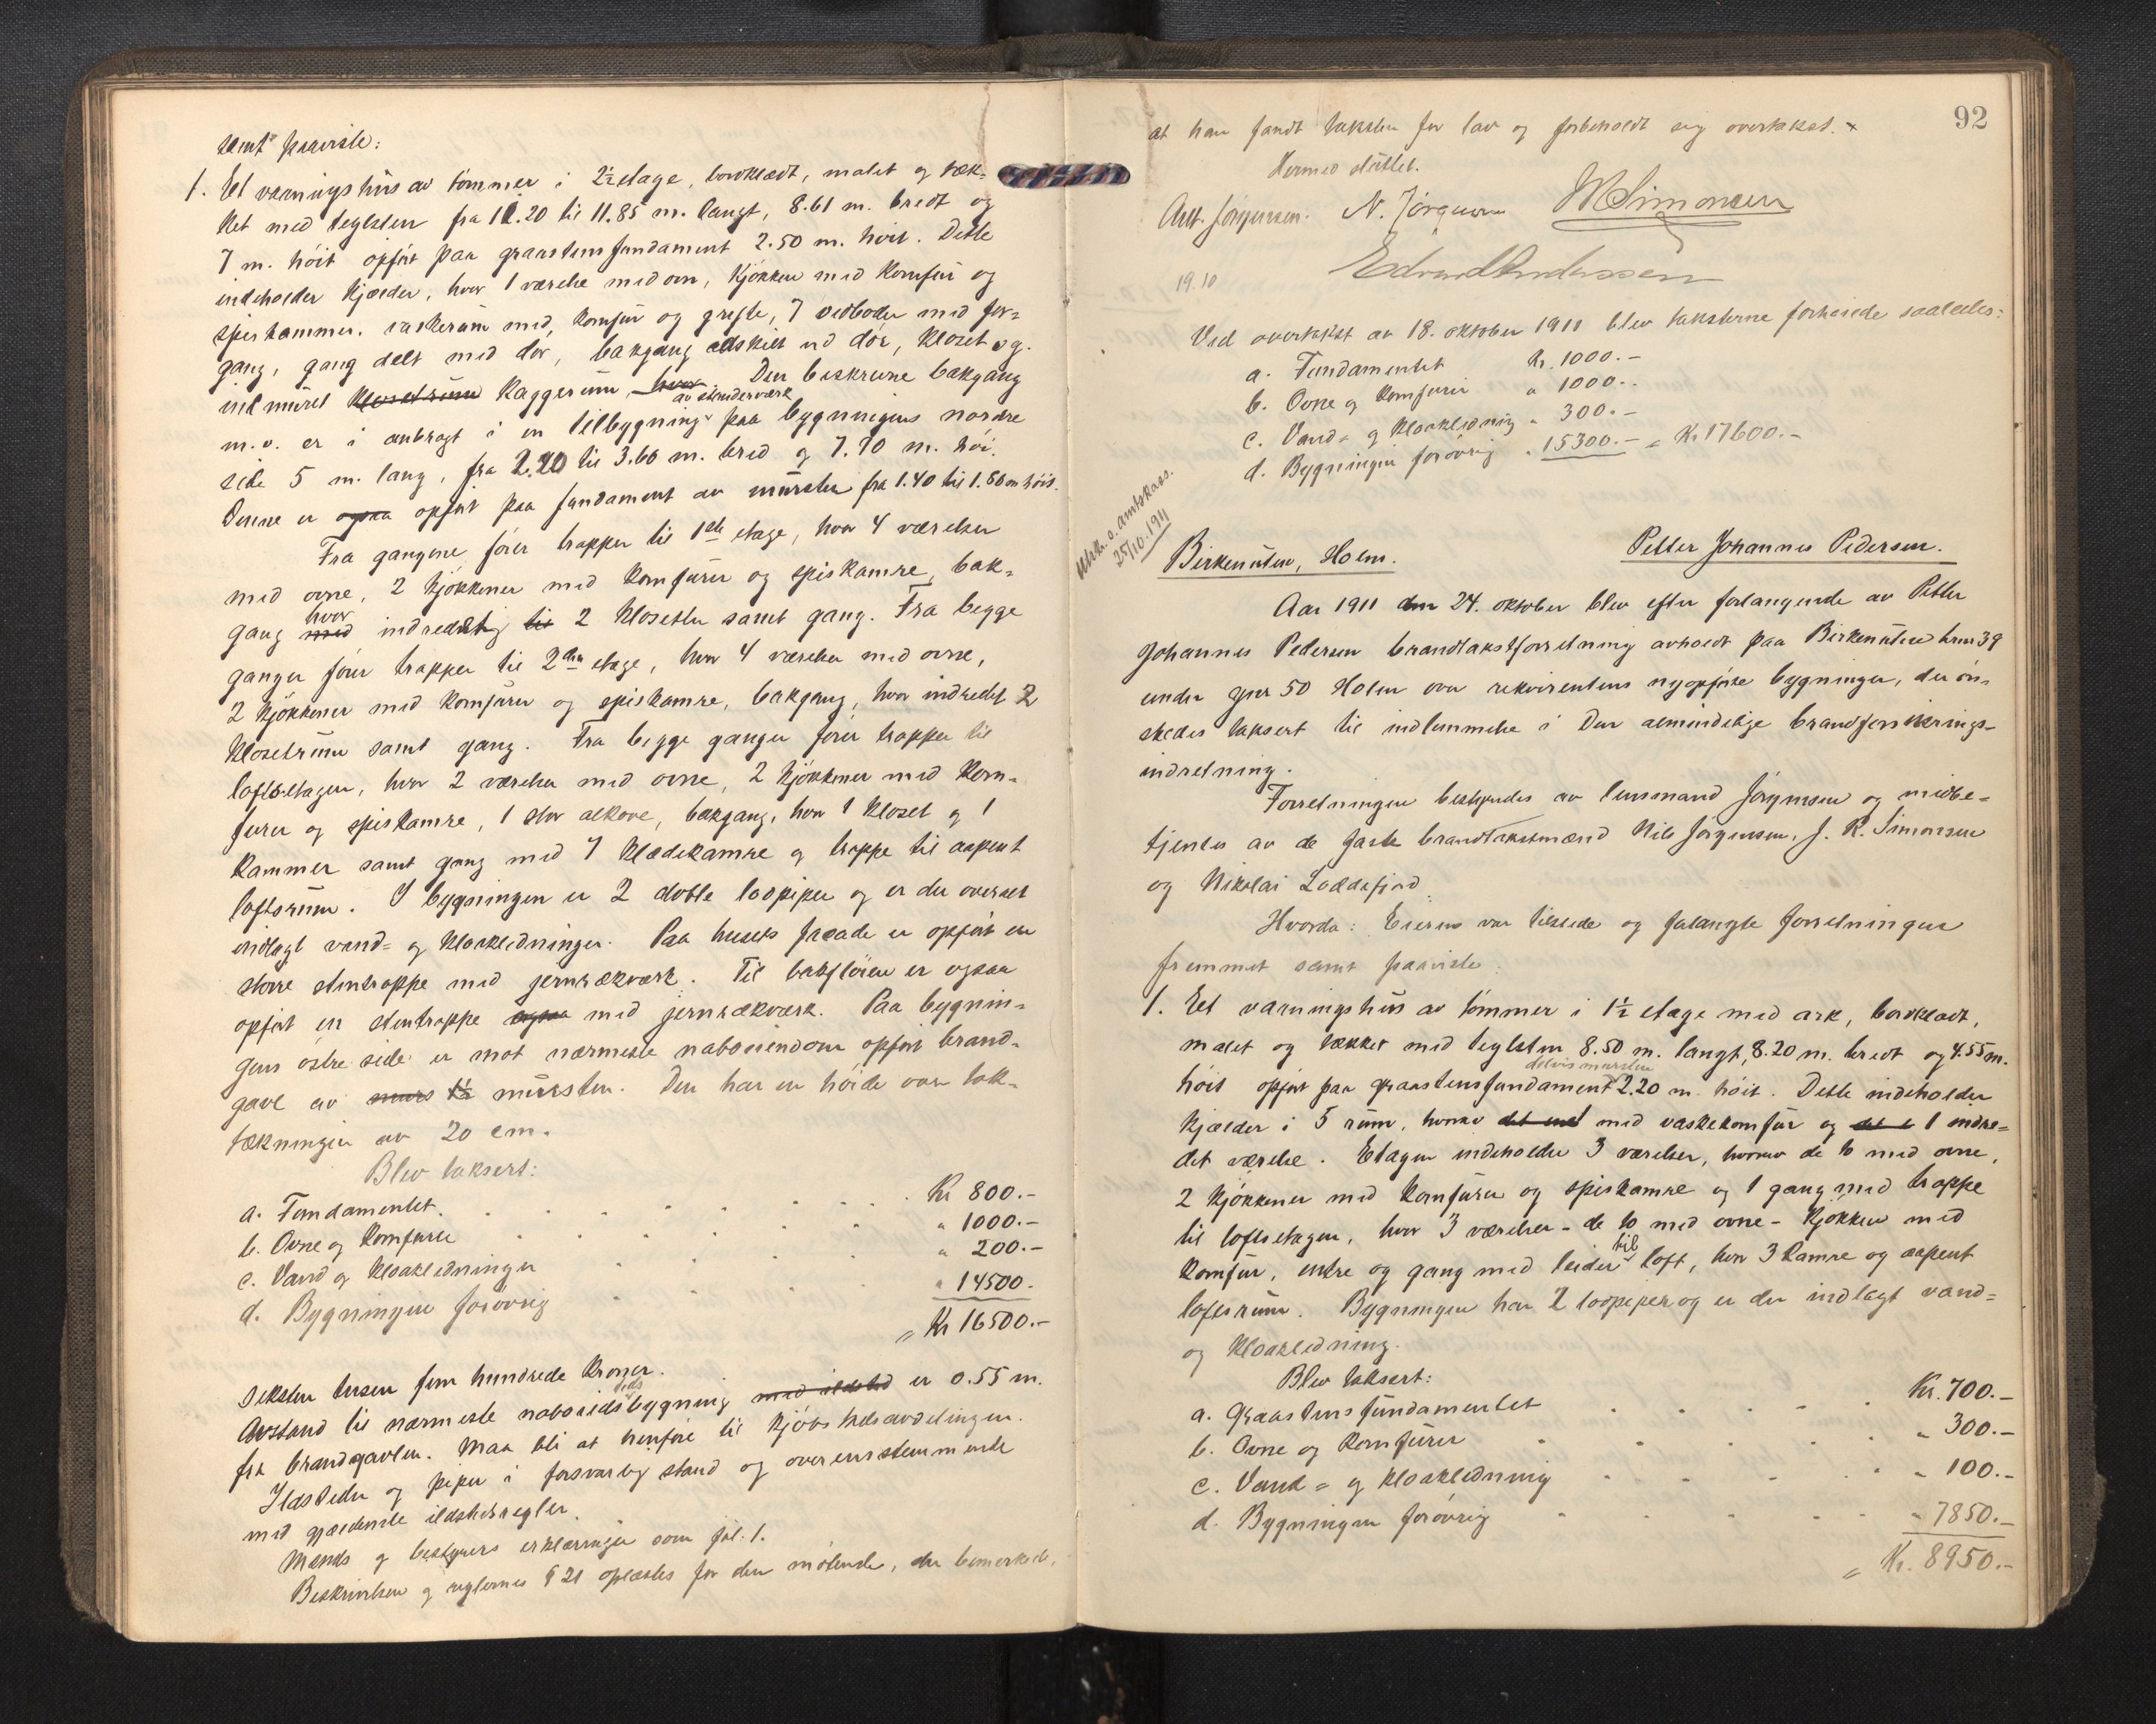 samt paaviste:
1. Et vaaningshus av tømmer i 2½ etage, bordklædt, malet og tæk-
ket med teglsten fra 11.20 til 11.85 m. langt, 8.61 m. bredt og
7 m. høit opført paa graastensfundament 2.50 m. høit. Dette
indeholder kjælder, hvor 1 værelse med ovn, kjøkken med komfur og
spiskammer. vaskerum med komfur og gryte, 7 vedboder med for-
gang, gang delt med dør, bakgang adskilt ved dør, kloset og
indmuret klosetrum kaggerum, hvor. Den beskrevne bakgang
av stenderverk
m.v. er i anbragt i en tilbygning paa bygningens nordre
side 5 m. lang, fra 2.20 til 3.60 m. bred og 7.70 m. høi.
Denne er ogsaa opført paa fundament av mursten fra 1.40 til 1.80 m høit.
Fra gangene fører trapper til 1ste etage, hvor 4 værelser
med ovne, 2 kjøkkener med komfurer og spiskamre, bak-
hvor
gang med indredet til 2 klosetter samt gang. Fra begge
ganger fører trapper til 2den etage, hvor 4 værelser med ovne,
2 kjøkkener med komfurer og spiskamre, bakgang, hvor indredet 2
klosetrum samt gang. Fra begge ganger fører trapper til
loftsetagen, hvor 2 værelser med ovne, 2 kjøkkener med kom-
furer og spiskamre, 1 stor alkove, bakgang, hvor 1 kloset og 1
kammer samt gang med 7 klædekamre og trappe til aapent
loftsrum. I bygningen er 2 doble lopiper og er der overalt
indlagt vand- og kloakledninger. Paa husets facade er opført en
større stentrappe med jernrækverk. Til bakfløien er ogsaa
opført en stentrappe ogsaa med jernrækverk. Paa bygnin-
gens østre side er mot nærmeste naboeiendom opført brand-
gavl av murs 1½ mursten. Den har en høide over tak-
tækningen av 20 cm.
Blev taksert:
a. Fundamentet . . . . . . Kr 800.-
b. Ovne og komfurer . . . . . " 1000.-
c. Vand og kloakledninger . . . . " 200.-
d. Bygningen forøvrig . . . . " 14500.-
= Kr 16500.-
seksten tusen fem hundrede kroner.
Avstand til nærmeste naboildstedsbygning med ildsted er 0.55 m.
fra brandgavlen. Maa bli at henføre til kjøbstadsavdelingen.
Ildsteder og piper i forsvarlig stand og overensstemmende
med gjældende ildstedsregler.
Mænds og bestyrers erklæringer som fol. 1.
Beskrivelsen og reglernes § 21 oplæstes for den møtende, der bemerkede,
92
at han fandt taksten for lav og forbeholdt sig overtakst. x
Hermed sluttet.
Ant. Jørgensen. N. Jörgensen JRSimonsen
19.10 Edvard Andersen
Ved overtakst av 18. oktober 1911 blev taksterne forhøiede saaledes:
a. Fundamentet kr. 1000.-
b. Ovne og komfurer " 1000.-
c. Vand- og kloakledning " 300.-
d. Bygningen forøvrig " 15300.- = Kr 17600.-
Utsk. s. amtskass.
25/10.1911
Birkenuten, Holm. Petter Johannes Pedersen.
Aar 1911 den 24. oktober blev efter forlangende av Petter
Johannes Pedersen brandtakstforretning avholdt paa Birkenuten brnr 39
under gnr 50 Holm over rekvirentens nyopførte bygninger, der øn-
skedes taksert til indlemmelse i Den almindelige brandforsikrings-
indretning.
Forretningen bestyredes av lensmand Jørgensen og medbe-
tjentes av de faste brandtakstmænd Nils Jørgensen, J. R. Simonsen
og Nikolai Loddefjord.
Hvorda: Eieren var tilstede og forlangte forretningen
fremmet samt paaviste:
1. Et vaaningshus av tømmer i 1½ etage med ark, bordklædt,
malet og tækket med teglsten 8.50 m. langt, 8.20 m. bredt og 4.55 m.
delvis mursten
høit opført paa graastensfundament 2.20 m. høit. Dette indeholder
kjælder i 5 rum, hvorav det ene 1 med vaskekomfur og det e 1 indre-
det værelse. Etagen indeholder 3 værelser, hvorav de to med ovne,
2 kjøkkener med komfurer og spiskamre og 1 gang med trappe
til loftsetagen, hvor 3 værelser - de to med ovne - kjøkken med
til
komfur, entre og gang med leider loft, hvor 3 kamre og aapent
loftsrum. Bygningen har 2 lodpiper og er der indlagt vand-
og kloakledning.
Blev taksert:
a. Graastensfundamentet . . . . Kr. 700.-
b. Ovne og komfurer . . . . . " 300.-
c. Vand- og kloakledning . . . . " 100.-
d. Bygningen forøvrig . . . . . " 7850.-
= Kr. 8950.-